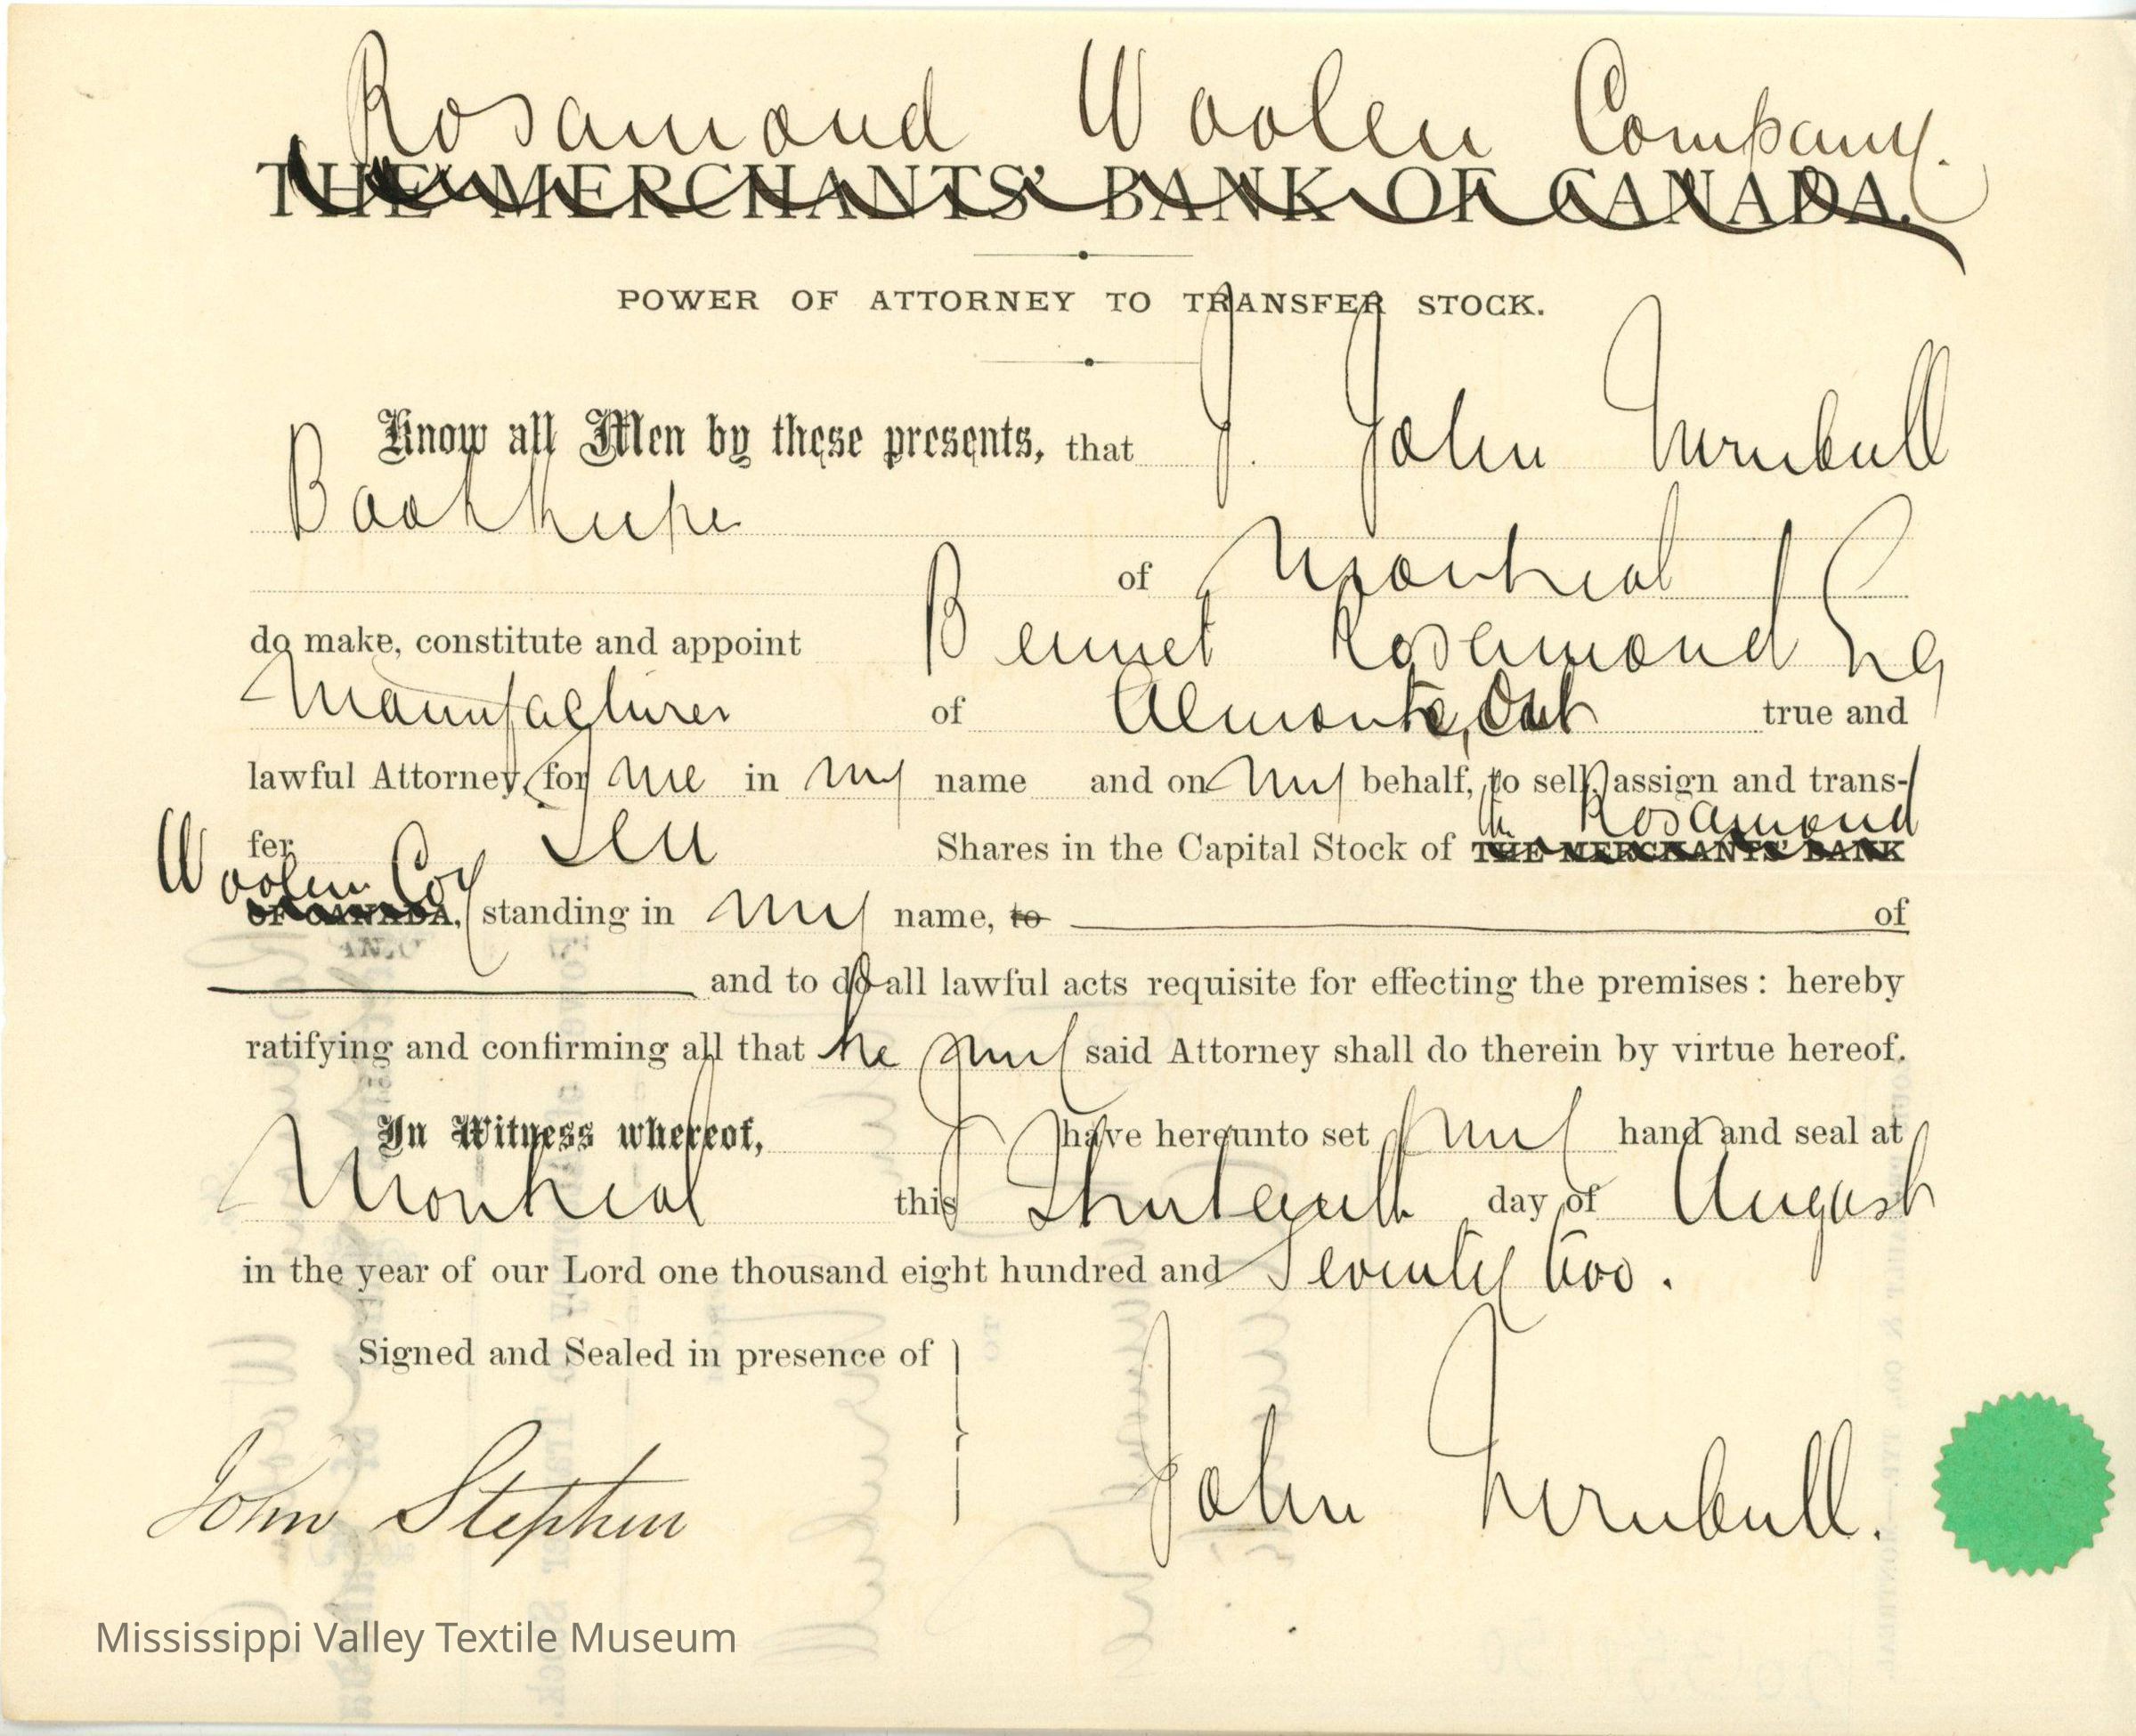 Rosamond Woolen Company.
THE MERCHANTS' BANK OF CANADA.
POWER OF ATTORNEY TO TRANSFER STOCK.
Know all Men by these presents, that I. John Turnbull
Bookkeeper
of Montreal
do make, constitute and appoint Bennet Rosamond Esq
Manufacturer of Almonte, Ont true and
lawful Attorney, for me in my name and on my behalf, to sell, assign and trans-
fer Ten Shares in the Capital Stock of THE MERCHANTS' BANK the Rosamond
OF CANADA, Woolen Coy standing in my name, to of
and to do all lawful acts requisite for effecting the premises: hereby
ratifying and confirming all that he my said Attorney shall do therein by virtue hereof.
In Witness whereof, I have hereunto set my hand and seal at
Montreal this Thirteenth day of August
in the year of our Lord one thousand eight hundred and Seventy two.
Signed and Sealed in presence of
John Stephen John Turnbull.
Mississippi Valley Textile Museum